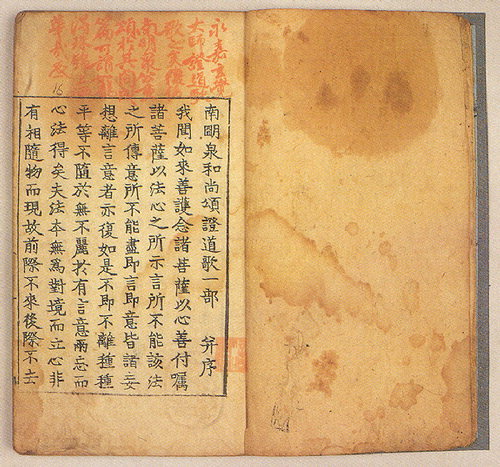 永嘉玄覺
大師證道
南明泉和尚頌證道歌一部 并序
我聞如來善護念諸菩薩以心善付囑
諸菩薩以法心之所示言所不能該法
之所傳意所不能盡即言即意皆諸妄
想離言意者亦復如是不即不離種種
平等不隨於無不麗於有言意兩忘而
心法得矣夫法本無爲對境而立心非
有相隨物而現故前際不來後際不去